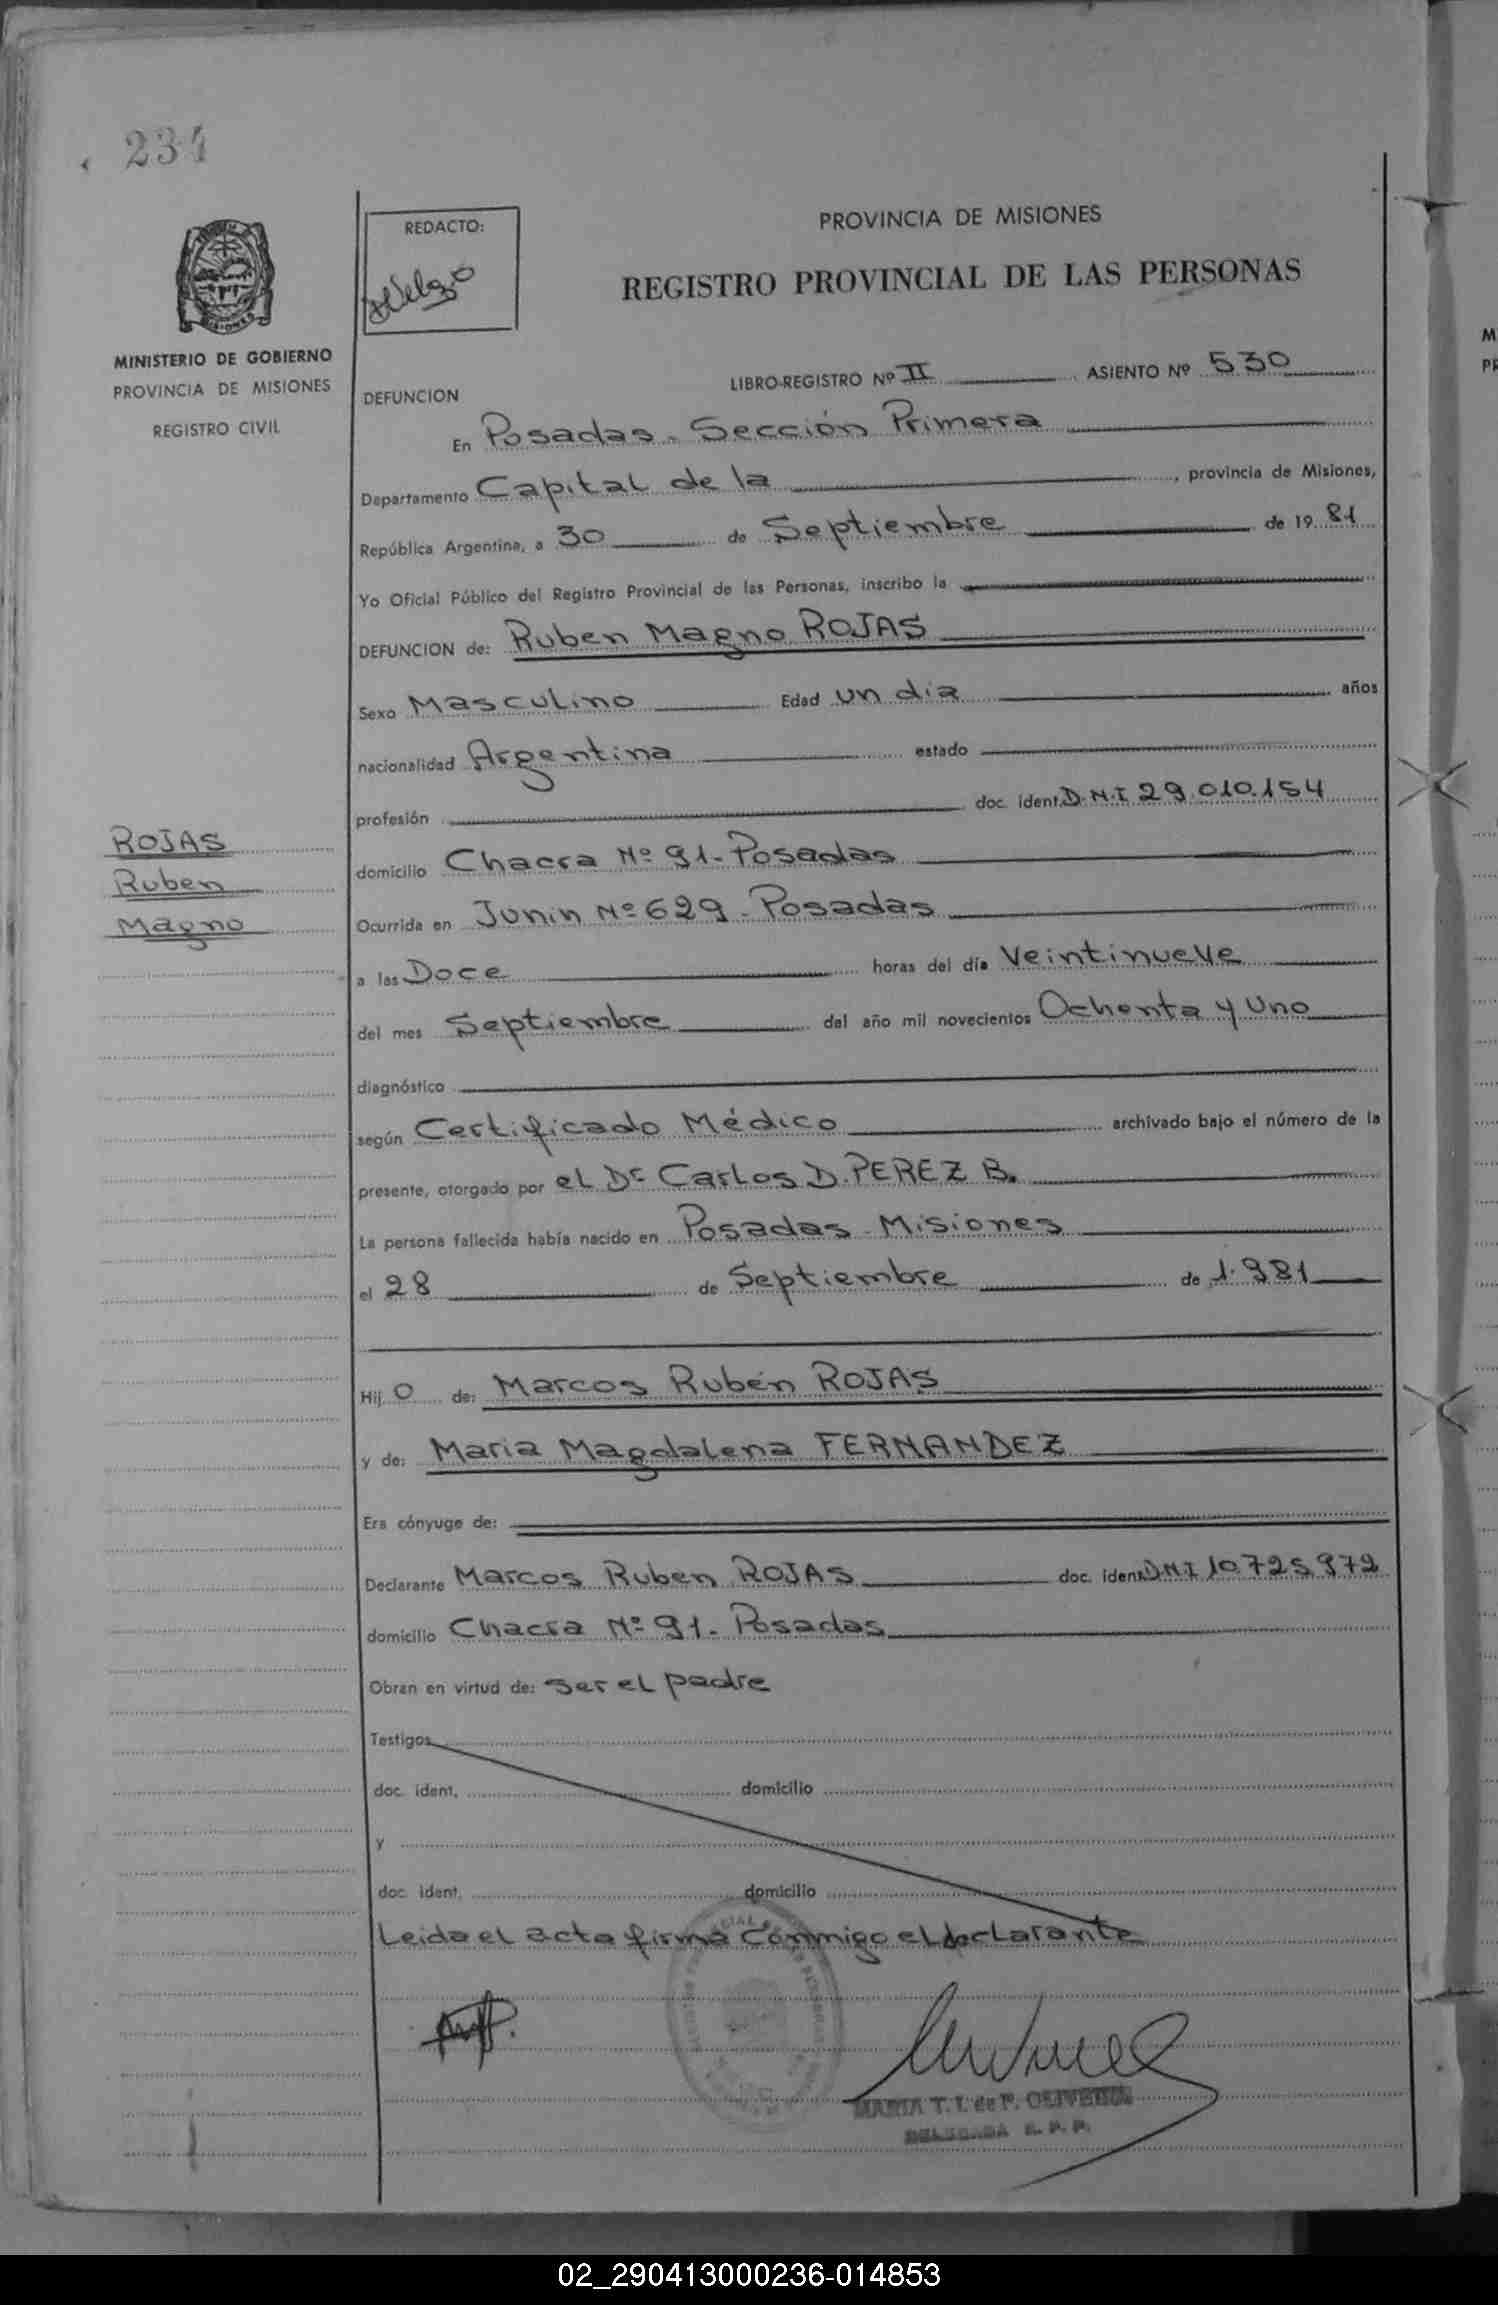 234
REDACTO:
PROVINCIA DE MISIONES
REGISTRO PROVINCIAL DE LAS PERSONAS
MINISTERIO DE GOBIERNO
PROVINCIA DE MISIONES
REGISTRO CIVIL
DEFUNCION LIBRO-REGISTRO Nº II ASIENTO Nº 530
En Posadas - Sección Primera
Departamento Capital de la, provincia de Misiones,
República Argentina, a 30 de Septiembre de 1981
Yo Oficial Público del Registro Provincial de las Personas, inscribo la
DEFUNCION de: Ruben Magno ROJAS
Sexo Masculino Edad un dia años
nacionalidad Argentina estado
profesión doc. ident. D.N.I 29.010.154
ROJAS
Ruben
Magno
domicilio Chacra Nº 91 - Posadas
Ocurrida en Junin Nº 629 - Posadas
a las Doce horas del día Veintinueve
del mes Septiembre del año mil novecientos Ochenta y Uno
diagnóstico
según Certificado Médico archivado bajo el número de la
presente, otorgado por el Dr Carlos D. PEREZ B.
La persona fallecida había nacido en Posadas - Misiones
el 28 de Septiembre de 1.981
Hij o de: Marcos Rubén ROJAS
y de: Maria Magdalena FERNANDEZ
Era cónyuge de:
Declarante Marcos Ruben ROJAS doc. ident. D.N.I 10.725.972
domicilio Chacra Nº 91 - Posadas
Obran en virtud de: ser el padre
Testigos
doc. ident. domicilio
y
doc. ident. domicilio
Leida el acta firma conmigo el declarante
MARIA T. I. de F. OLIVERA
DELEGADA R. P. P.
02_290413000236-014853